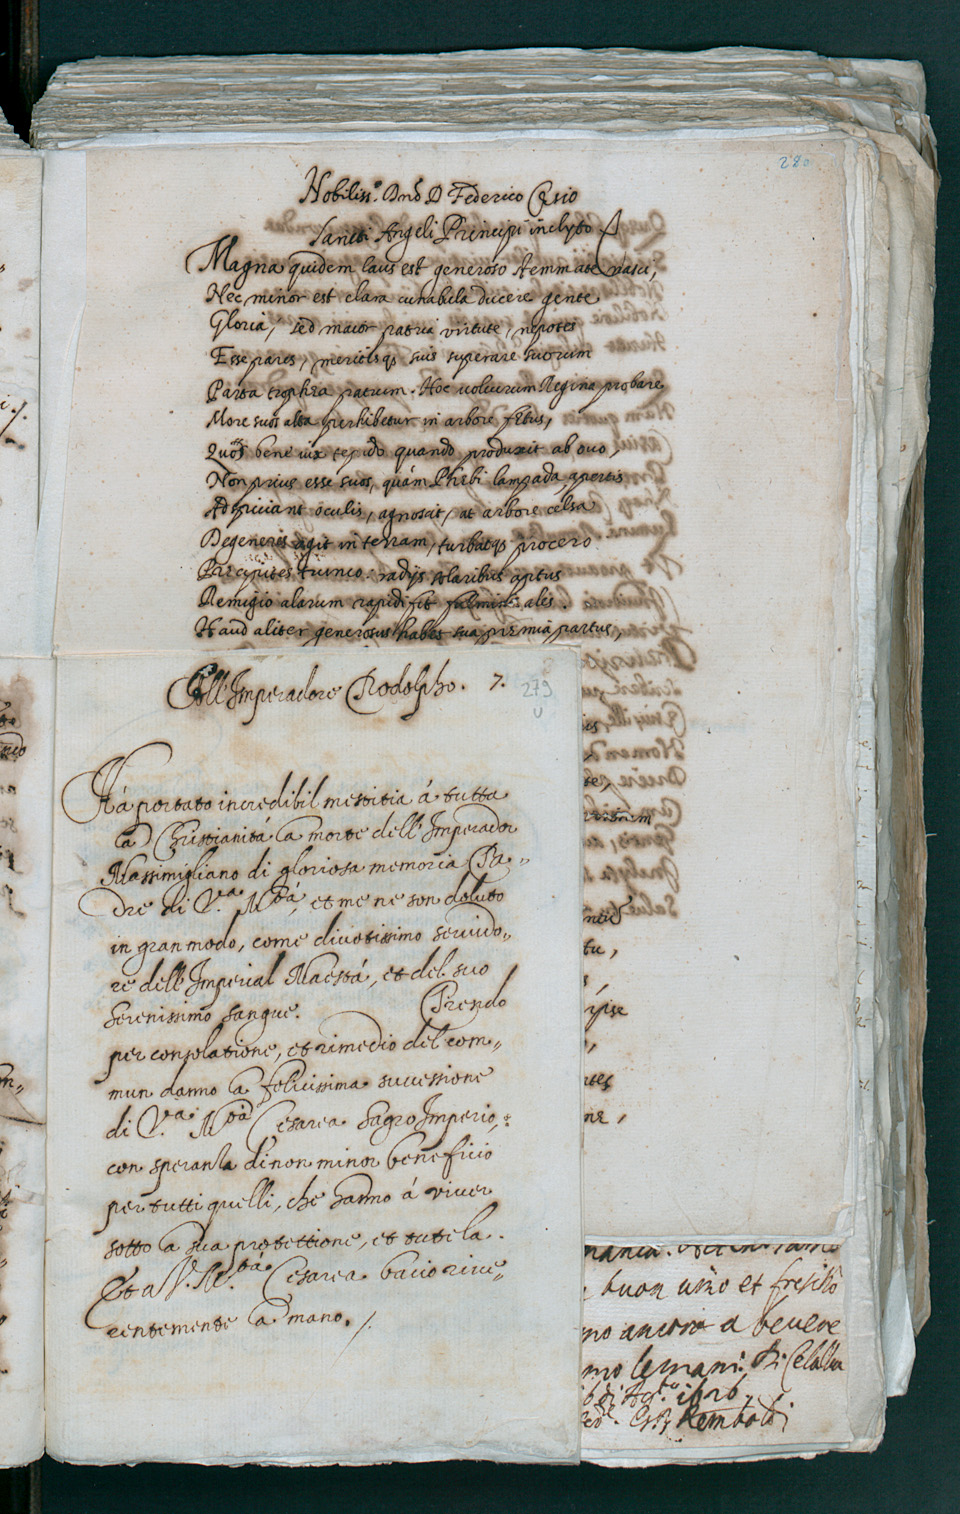 280
Nobiliss.º Dnō D Federico Cęsio
Sancti Angeli Principi inclyto
Magna quidem laus est generoso stemmate nasci,
Nec minor est clara cunabula ducere gente
Gloria, sed maior patria virtute, nepotes
Esse pares, meritisq; suis superare suorum
Parta trophęa patrum. Hoc uolucrum Regina probare
More suos alta perhibetur in arbore fętus,
Quos bene uix tepido quando produxit ab ouo,
Non prius esse suos, quám Phębi lampada apertis
Adspiciant oculis, agnoscit, at arbore celsa
Degeneres agit in terram, turbatq; procero
Pręcipites trunco: radijs solaribus aptus
Remigio alarum rapidi fit fulminis ales.
Haud aliter generosus habet sua pręmia partus,
All' Imperadore Rodolpho. 7.
279
Há portato incredibil mestitia á tutta
la Christianitá la morte dell' Imperador
Massimigliano di gloriosa memoria Pa-
dre di V.ª M.tá, et me ne son doluto
in gran modo, come diuotissimo seruido-
re dell' Imperial Maestá, et del suo
Serenissimo sangue. Prendo
per consolatione, et rimedio del com-
mun danno la felicissima successione
di V.ª M.tá Cesarea Sagro Imperio,
con speranza di non minor beneficio
per tutti quelli, che hanno á viuer
sotto la sua protettione, et tutela.
Et a V. M.tá Cesarea bacio riue-
rentemente la mano. /.
tu,
ipse
buon uino et frescho
mo ancora a beuere
1626
Remboldi